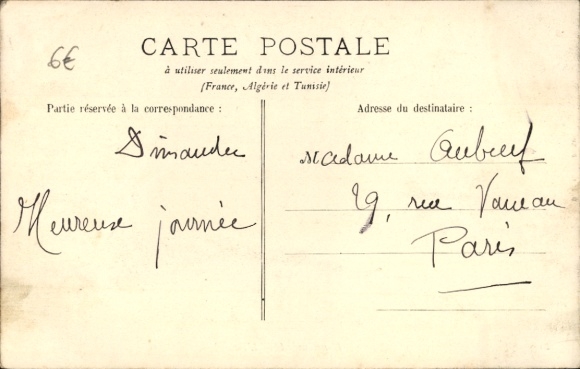 6€
CARTE POSTALE
à utiliser seulement dans le service intérieur
(France, Algérie et Tunisie)
Partie réservée à la correspondance :
Dimanche
Heureuse journée
Adresse du destinataire :
Madame Aubeuf
29, rue Vaneau
Paris